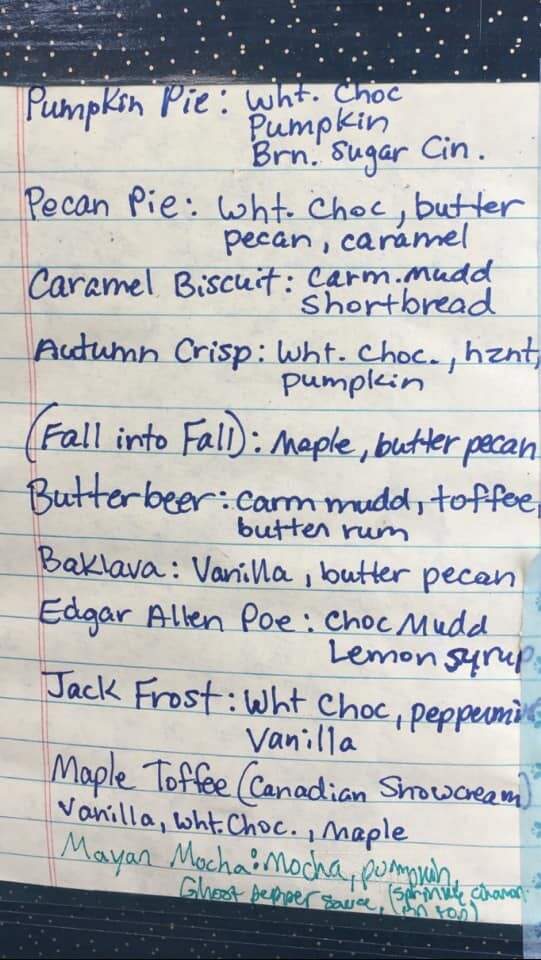 Pumpkin Pie: Wht. Choc
Pumpkin
Brn. Sugar Cin.
Pecan Pie: Wht. Choc, butter
pecan, caramel
Caramel Biscuit: Carm. Mudd
Shortbread
Autumn Crisp: Wht. Choc., hznt,
pumpkin
(Fall into Fall): Maple, butter pecan
Butterbeer: Carm mudd, toffee,
butter rum
Baklava: Vanilla, butter pecan
Edgar Allen Poe: Choc Mudd
Lemon syrup
Jack Frost: Wht Choc, peppermin
Vanilla
Maple Toffee (Canadian Snowcream)
Vanilla, Wht. Choc., Maple
Mayan Mocha: Mocha, pumpkin,
Ghost pepper sauce, (sprinkle
on top)